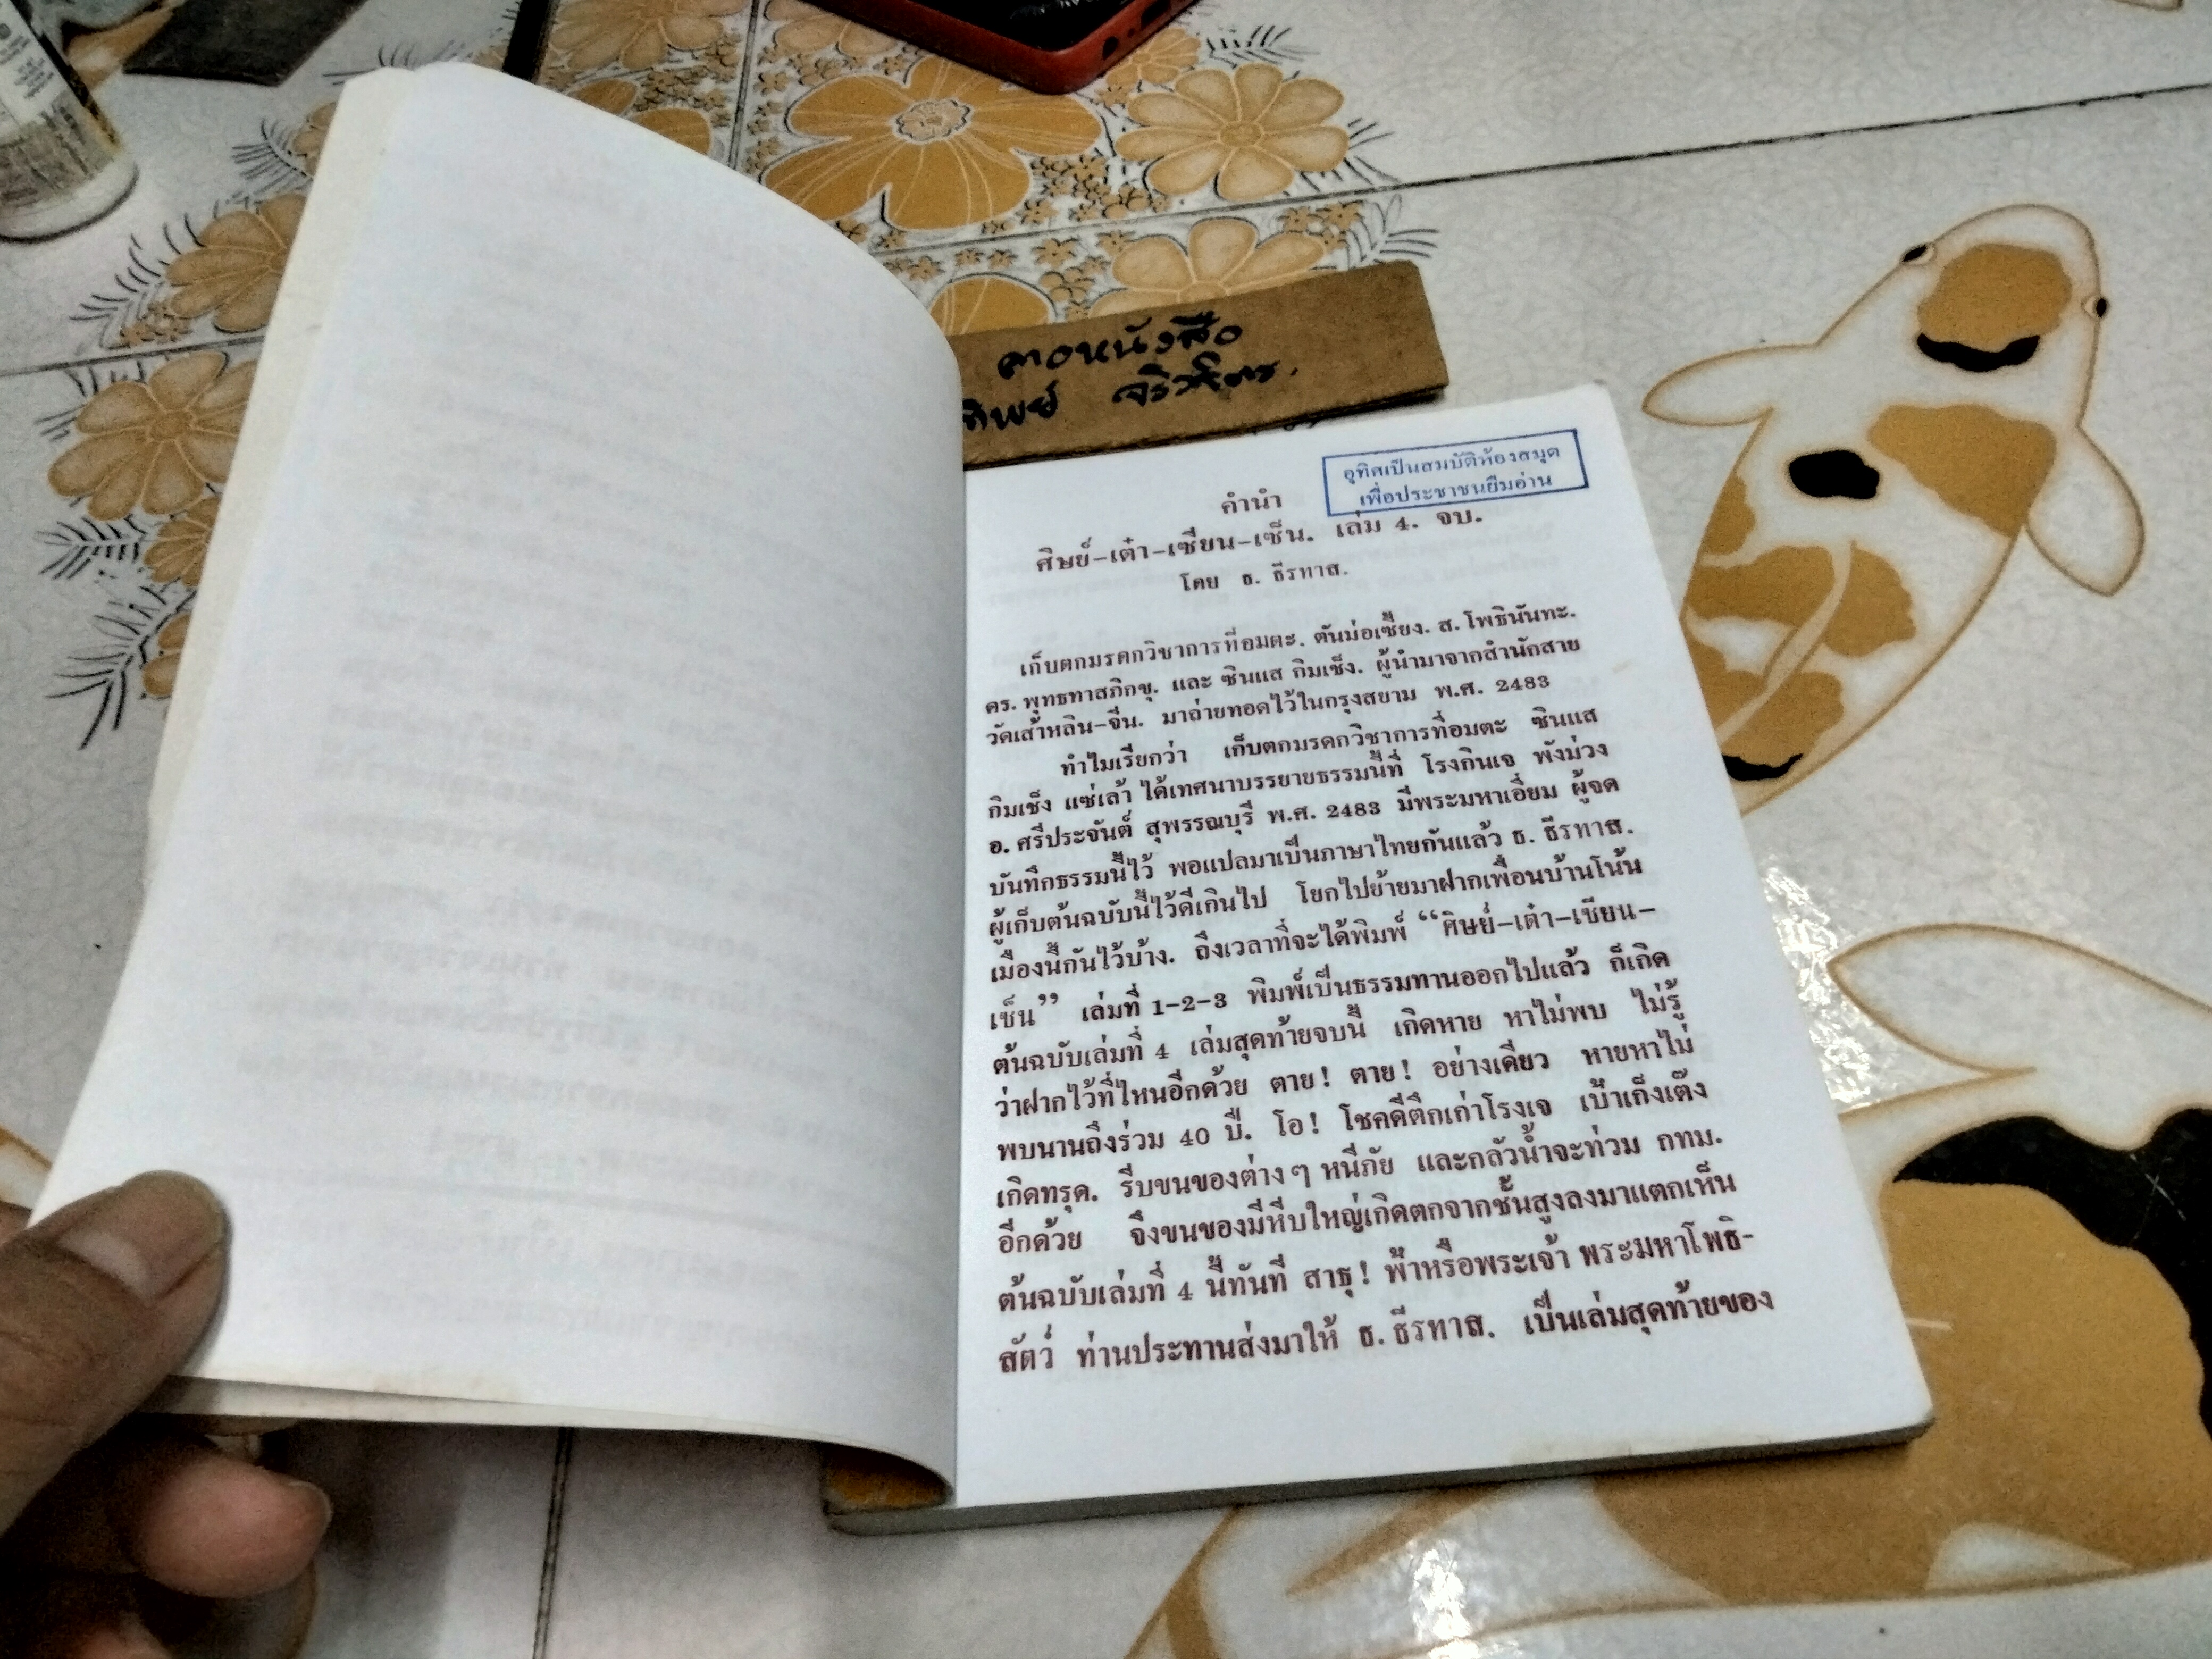 ดาวหนังสือ
ทิพย์
อุทิศเป็นสมบัติห้องสมุด
เพื่อประชาชนยืมอ่าน
คำนำ
ศิษย์-เต๋า-เซียน-เซ็น. เล่ม 4. จบ.
โดย ธ. ธีรทาส.
เก็บตกมรดกวิชาการที่อมตะ. ตันม่อเซี้ยง. ส. โพธินันทะ.
ดร. พุทธทาสภิกขุ. และ ซินแส กิมเช็ง. ผู้นำมาจากสำนักสาย
วัดเส้าหลิน-จีน. มาถ่ายทอดไว้ในกรุงสยาม พ.ศ. 2483
ทำไมเรียกว่า เก็บตกมรดกวิชาการที่อมตะ ซินแส
กิมเช็ง แซ่เล้า ได้เทศนาบรรยายธรรมนี้ที่ โรงกินเจ พังม่วง
อ. ศรีประจันต์ สุพรรณบุรี พ.ศ. 2483 มีพระมหาเอี่ยม ผู้จด
บันทึกธรรมนี้ไว้ พอแปลมาเป็นภาษาไทยกันแล้ว ธ. ธีรทาส.
ผู้เก็บต้นฉบับนี้ไว้ดีเกินไป โยกไปย้ายมาฝากเพื่อนบ้านโน้น
เมืองนี้กันไว้บ้าง. ถึงเวลาที่จะได้พิมพ์ “ศิษย์-เต๋า-เซียน-
เซ็น” เล่มที่ 1-2-3 พิมพ์เป็นธรรมทานออกไปแล้ว ก็เกิด
ต้นฉบับเล่มที่ 4 เล่มสุดท้ายจบนี้ เกิดหาย หาไม่พบ ไม่รู้
ว่าฝากไว้ที่ไหนอีกด้วย ตาย! ตาย! อย่างเดียว หายหาไม่
พบนานถึงร่วม 40 ปี. โอ! โชคดีตึกเก่าโรงเจ เป้าเก็งเต๊ง
เกิดทรุด. รีบขนของต่างๆ หนีภัย และกลัวน้ำจะท่วม กทม.
อีกด้วย จึงขนของมีหีบใหญ่เกิดตกจากชั้นสูงลงมาแตกเห็น
ต้นฉบับเล่มที่ 4 นี้ทันที สาธุ! ฟ้าหรือพระเจ้า พระมหาโพธิ-
สัตว์ ท่านประทานส่งมาให้ ธ. ธีรทาส. เป็นเล่มสุดท้ายของ